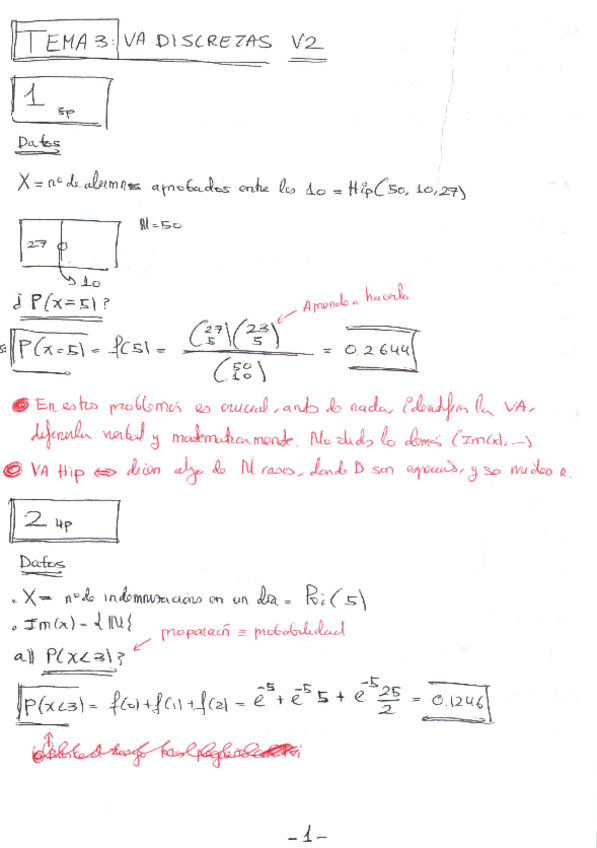 TEMA 3: VA DISCRETAS V2
1 5p
Datos
X = nº de alumnos aprobados entre los 10 = Hip(50, 10, 27)
N = 50
27
10
¿P(X=5)?
Aprende a hacerlo
P(X=5) = f(5) = (27 5)(23 5) / (50 10) = 0.2644
En estos problemas es crucial, antes de nada, identificar la VA,
definirla verbal y matemáticamente. No lo demás (Im(X), ...)
VA Hip ⇔ dicen algo de N casos, donde D son, y se miden n.
2 4p
Datos
. X = nº de indemnizaciones en un día = Poi(5)
. Im(x) = {ℕ}
proporción ≡ probabilidad
a)) P(X<3)?
P(X<3) = f(0)+f(1)+f(2) = e^-5 + e^-5 5 + e^-5 25/2 = 0.1246
-1-